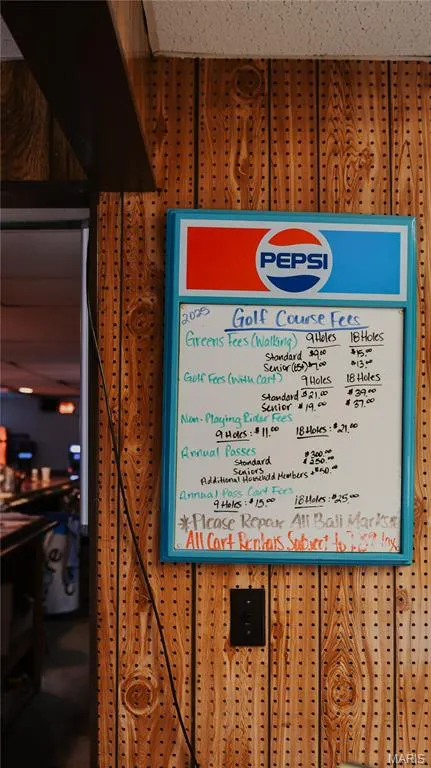 PEPSI
2025
Golf Course Fees
Greens Fees (Walking) 9 Holes 18 Holes
Standard $9.00 $15.00
Senior $7.00 $13.00
Golf Fees (with Cart) 9 Holes 18 Holes
Standard $21.00 $39.00
Senior $19.00 $37.00
Non-Playing Rider Fees
9 Holes: $11.00 18 Holes: $21.00
Annual Passes
Standard $300.00
Seniors $250.00
Additional Household Members +$50.00
Annual Pass Cart Fees
9 Holes: $15.00 18 Holes: $25.00
*Please Repair All Ball Marks*
All Cart Rentals Subject to Tax
MARIS